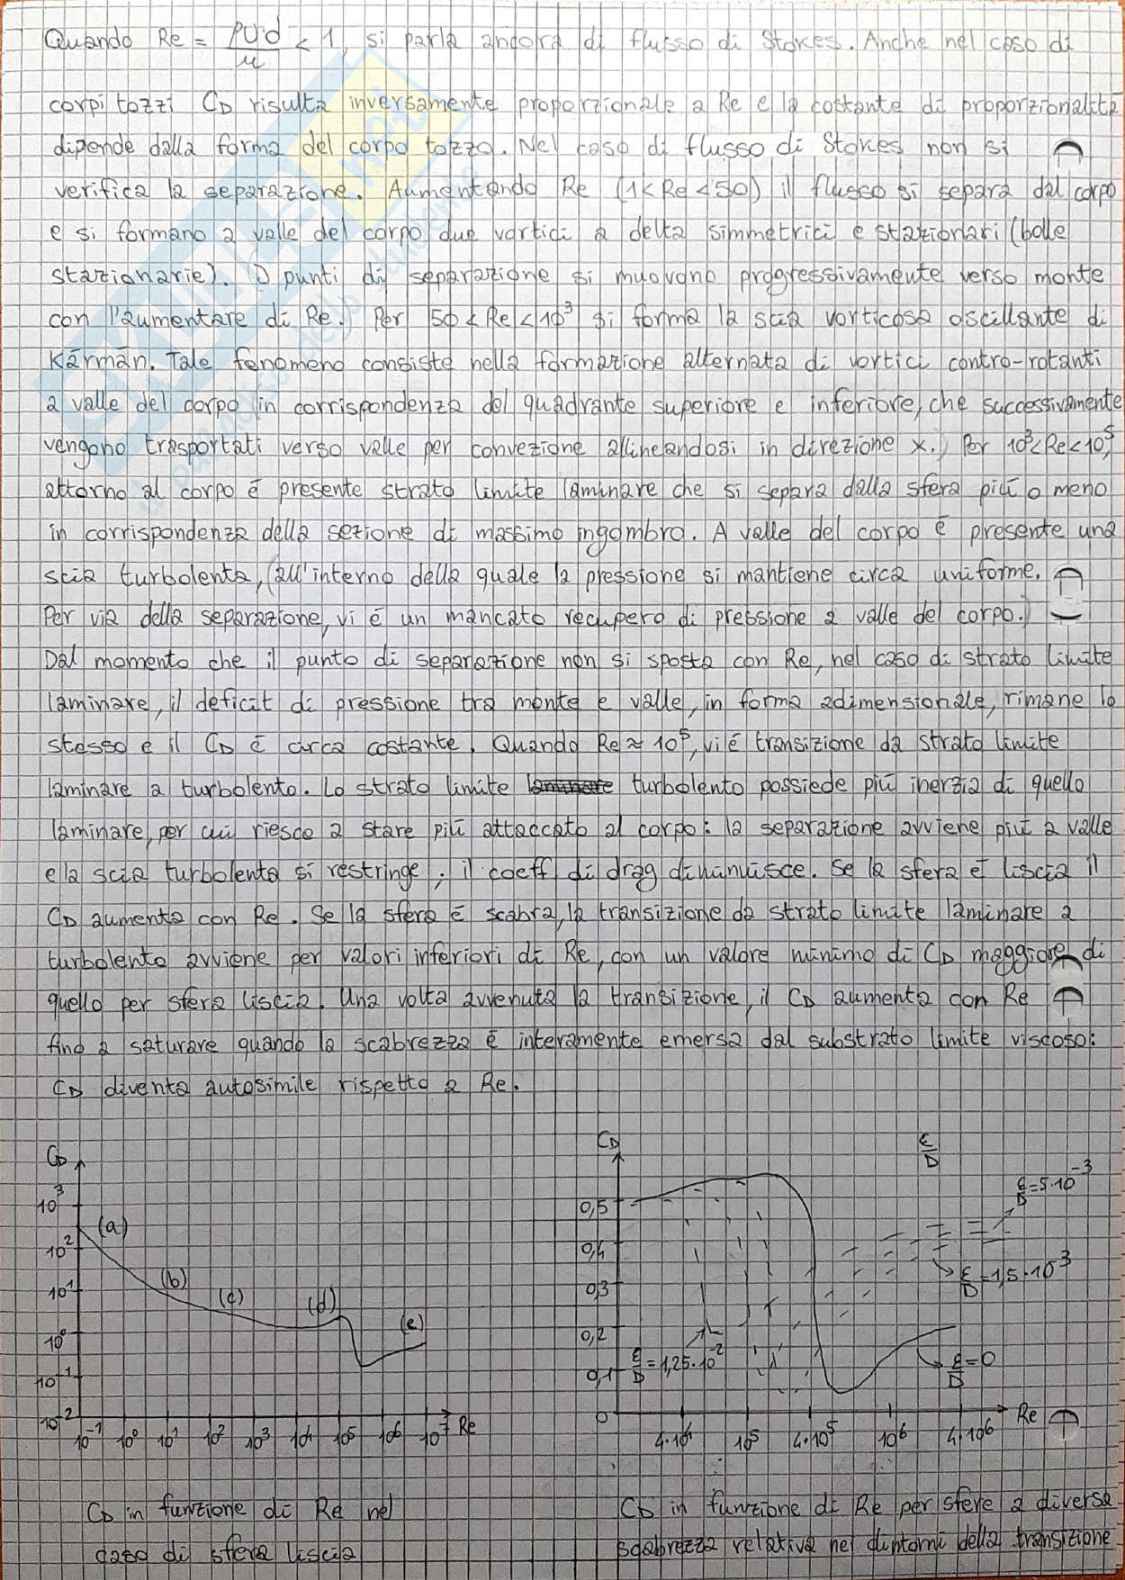 Quando Re = ρUd/μ < 1, si parla ancora di flusso di Stokes. Anche nel caso di
corpi tozzi CD risulta inversamente proporzionale a Re e la costante di proporzionalità
dipende dalla forma del corpo tozzo. Nel caso di flusso di Stokes non si
verifica la separazione. Aumentando Re (1<Re<50) il flusso si separa dal corpo
e si formano a valle del corpo due vortici a delta simmetrici e stazionari (bolle
stazionarie). I punti di separazione si muovono progressivamente verso monte
con l'aumentare di Re. Per 50<Re<10³ si forma la scia vorticosa oscillante di
Kármán. Tale fenomeno consiste nella formazione alternata di vortici contro-rotanti
a valle del corpo (in corrispondenza del quadrante superiore e inferiore, che successivamente
vengono trasportati verso valle per convezione allineandosi in direzione x.) Per 10³<Re<10⁵,
attorno al corpo è presente strato limite laminare che si separa dalla sfera più o meno
in corrispondenza della sezione di massimo ingombro. A valle del corpo è presente una
scia turbolenta, (all'interno della quale la pressione si mantiene circa uniforme.
Per via della separazione, vi è un mancato recupero di pressione a valle del corpo.)
Dal momento che il punto di separazione non si sposta con Re, nel caso di strato limite
laminare, il deficit di pressione tra monte e valle, in forma adimensionale, rimane lo
stesso e il CD è circa costante. Quando Re ≈ 10⁵, vi è transizione da strato limite
laminare a turbolento. Lo strato limite turbolento possiede più inerzia di quello
laminare, per cui riesce a stare più attaccato al corpo: la separazione avviene più a valle
e la scia turbolenta si restringe; il coeff. di drag diminuisce. Se la sfera è liscia il
CD aumenta con Re. Se la sfera è scabra, la transizione da strato limite laminare a
turbolento avviene per valori inferiori di Re, con un valore minimo di CD maggiore di
quello per sfera liscia. Una volta avvenuta la transizione, il CD aumenta con Re
fino a saturare quando la scabrezza è interamente emersa dal substrato limite viscoso:
CD diventa autosimile rispetto a Re.
CD
10³
10²
10¹
10⁰
10⁻¹
10⁻²
(a)
(b)
(c)
(d)
(e)
10⁻¹ 10⁰ 10¹ 10² 10³ 10⁴ 10⁵ 10⁶ 10⁷ Re
CD in funzione di Re nel
caso di sfera liscia
CD
ε/D
0,5
0,4
0,3
0,2
0,1
0
ε/D=5·10⁻³
ε/D=1,5·10³
ε/D=1,25·10⁻²
ε/D=0
4·10⁴ 10⁵ 4·10⁵ 10⁶ 4·10⁶ Re
CD in funzione di Re per sfere a diversa
scabrezza relativa nei dintorni della transizione